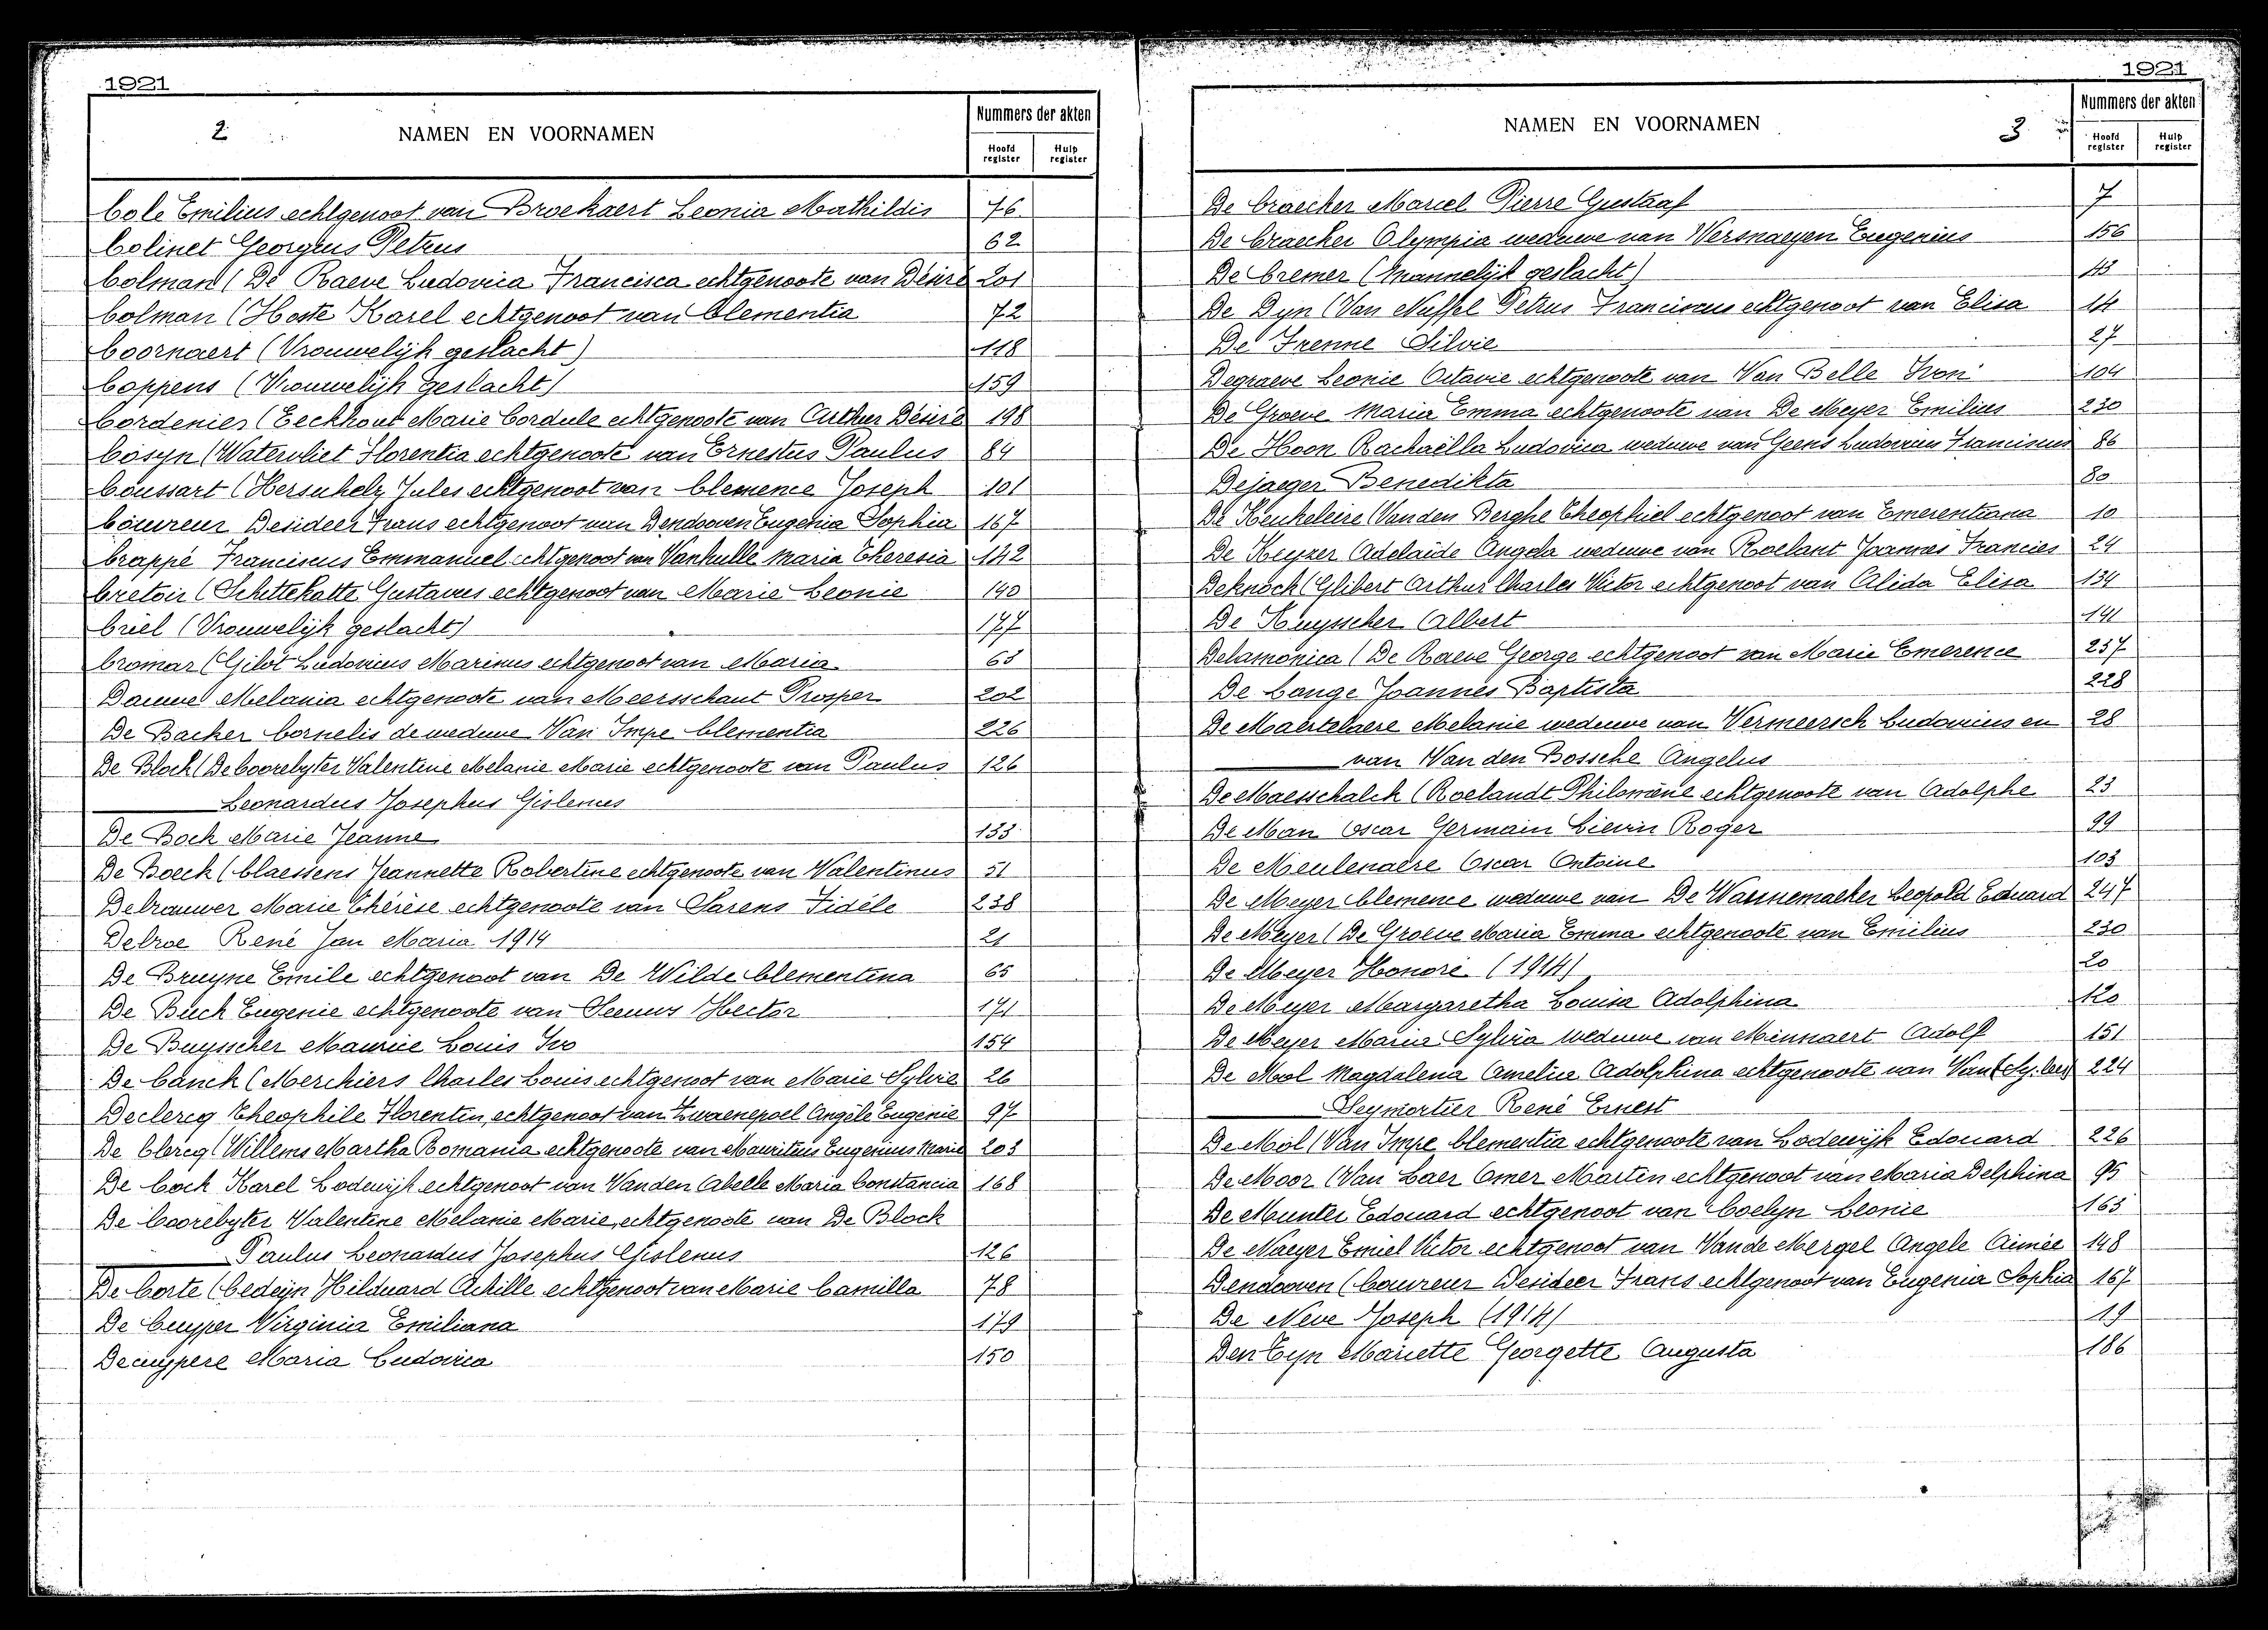 1921
2 NAMEN EN VOORNAMEN Nummers der akten
Hoofd register Hulp register
Cole Emilius echtgenoot van Broekaert Leonia Mathildis 76
Colinet Georgius Petrus 62
Colman (De Raeve Ludovica Francisca echtgenoote van Désiré 201
Colman (Hoste Karel echtgenoot van Clementia 72
Coornaert (Vrouwelijk geslacht) 118
Coppens (Vrouwelijk geslacht) 159
Cordenier (Eeckhout Marie Cordule echtgenoote van Arthur Désiré 198
Cosyn (Watervliet Florentia echtgenoote van Ernestus Paulus 84
Coussart (Hersuhelz Jules echtgenoot van Clemence Joseph 101
Couvreur Desideer Frans echtgenoot van Dendooven Eugenia Sophia 167
Crappé Franciscus Emmanuel echtgenoot van Vanhulle Maria Theresia 142
Cretoir (Schittekatte Gustavus echtgenoot van Marie Leonie 190
Criel (Vrouwelijk geslacht) 177
Cromar (Gilot Ludovicus Marinus echtgenoot van Maria 63
Dauwe Melania echtgenoote van Meersschaut Prosper 202
De Backer Cornelis de weduwe Van Impe Clementia 226
De Block (De Coorebyter Valentine Melanie Marie echtgenoote van Paulus 126
Leonardus Josephus Gislenus
De Bock Marie Jeanne 133
De Boeck (Claessens Jeannette Robertine echtgenoote van Valentinus 51
Debrauwer Marie Thérèse echtgenoote van Sarens Fidéle 238
Debroe René Jan Maria 1914 21
De Bruyne Emile echtgenoot van De Wilde Clementina 65
De Buck Eugenie echtgenoote van Seeuws Hector 171
De Buysscher Maurice Louis Ivo 154
De Canck (Merchiers Charles Louis echtgenoot van Marie Sylvie 26
Declercq Theophile Florentin, echtgenoot van Zwaenepoel Angèle Eugenie 97
De Clercq (Willems Martha Romania echtgenoote van Mauritius Eugenius Marie 203
De Cock Karel Lodewijk echtgenoot van Vanden Abeele Maria Constancia 168
De Coorebyter Valentine Melanie Marie, echtgenoote van De Block
Paulus Leonardus Josephus Gislenus 126
De Corte (Cedeijn Hilduard Achille echtgenoot van Marie Camilla 78
De Cuyper Virginia Emiliana 179
Decuypere Maria Ludovica 150
1921
NAMEN EN VOORNAMEN 3 Nummers der akten
Hoofd register Hulp register
De Craecker Marcel Pierre Gustaaf 7
De Craecker Olympia weduwe van Versnaeyen Eugenius 156
De Cremer (Mannelijk geslacht) 43
De Dyn (Van Nuffel Petrus Franciscus echtgenoot van Elisa 14
De Frenne Silvie 27
Degraeve Leonie Octavie echtgenoote van Van Belle Ivon 104
De Groeve Maria Emma echtgenoote van De Meyer Emilius 230
De Hoon Rachaëlla Ludovica weduwe van Geens Ludovicus Franciscus 86
Dejaeger Benedikta 80
De Keukeleire (Vanden Berghe Theophiel echtgenoot van Emerentiana 10
De Keyzer Adelaïde Angela weduwe van Roelant Joannes Francies 24
Deknock (Glibert Arthur Charles Victor echtgenoot van Alida Elisa 134
De Kuysscher Albert 141
Delamonica (De Raeve George echtgenoot van Marie Emerence 237
De Lange Joannes Baptista 228
De Maertelaere Melanie weduwe van Vermeersch Ludovicus en 28
van Van den Bossche Angelus
De Maesschalck (Roelandt Philomène echtgenoote van Adolphe 23
De Man Oscar Germain Lievin Roger 99
De Meulenaere Oscar Antoine 103
De Meyer Clemence weduwe van De Wannemaeker Leopold Eduard 247
De Meyer (De Groeve Maria Emma echtgenoote van Emilius 230
De Meyer Honoré (1914) 20
De Meyer Margaretha Louisa Adolphina 120
De Meyer Maria Sylvia weduwe van Minnaert Adolf 151
De Mol Magdalena Amelia Adolphina echtgenoote van 224
Seymortier René Ernest
De Mol (Van Impe Clementia echtgenoote van Lodewijk Edouard 226
De Moor (Van Laer Omer Martin echtgenoot van Maria Delphina 95
De Munter Edouard echtgenoot van Coelyn Leonie 163
De Naeyer Emiel Victor echtgenoot van Van de Mergel Angele Aimée 148
Dendooven (Couvreur Desideer Frans echtgenoot van Eugenia Sophia 167
De Neve Joseph (1914) 19
Den Tyn Mariette Georgette Augusta 186